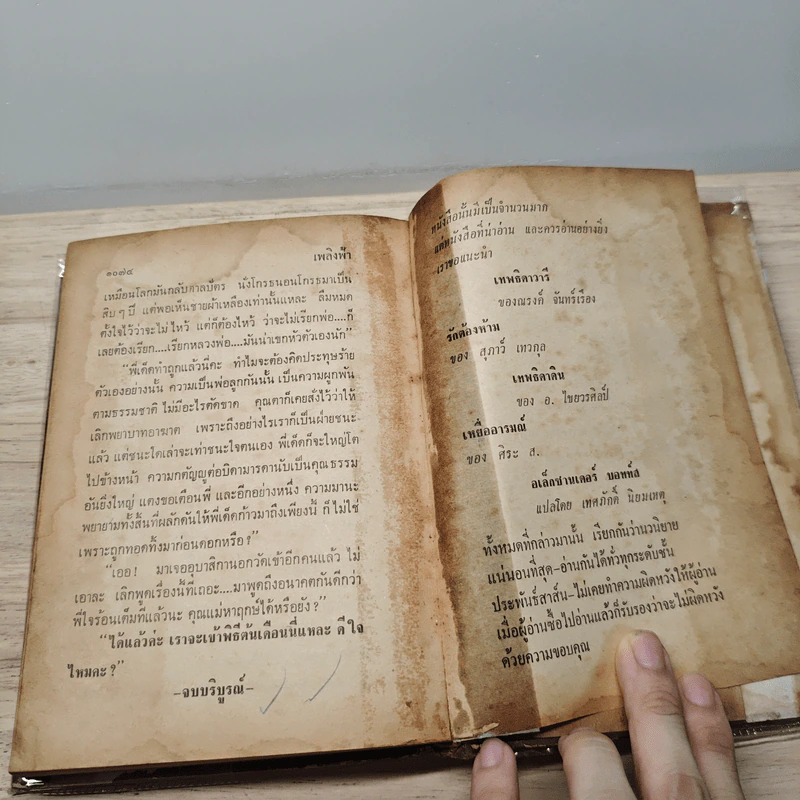 ๑๐๗๔
เพลิงฟ้า
เหมือนโลกมันกลับตาลปัตร นั่งโกรธนอนโกรธมาเป็น
สิบ ๆ ปี แต่พอเห็นชายผ้าเหลืองเท่านั้นแหละ ลืมหมด
ตั้งใจไว้ว่าจะไม่ไหว้ แต่ก็ต้องไหว้ ว่าจะไม่เรียกพ่อ....ก็
เลยต้องเรียก....เรียกหลวงพ่อ....มันน่าเขกหัวตัวเองนัก”
“พี่เด็ดทำถูกแล้วนี่คะ ทำไมจะต้องคิดประทุษร้าย
ตัวเองอย่างนั้น ความเป็นพ่อลูกกันนั้น เป็นความผูกพัน
ตามธรรมชาติ ไม่มีอะไรตัดขาด คุณตาก็เคยสั่งไว้ว่าให้
เลิกพยาบาทอาฆาต เพราะถึงอย่างไรเราก็เป็นฝ่ายชนะ
แล้ว แต่ชนะใดเล่าจะเท่าชนะใจตนเอง พี่เด็ดก็จะใหญ่โต
ไปข้างหน้า ความกตัญญูต่อบิดามารดานับเป็นคุณธรรม
อันยิ่งใหญ่ แตงขอเตือนพี่ และอีกอย่างหนึ่ง ความมานะ
พยายามทั้งสิ้นที่ผลักดันให้พี่เด็ดก้าวมาถึงเพียงนี้ ก็ไม่ใช่
เพราะถูกทอดทิ้งมาก่อนดอกหรือ?”
“เออ! มาเจออุบาสิกานอกวัดเข้าอีกคนแล้ว ไม่
เอาละ เลิกพูดเรื่องนี้ทีเถอะ....มาพูดถึงอนาคตกันดีกว่า
พี่ใจร้อนเต็มทีแล้วนะ คุณแม่หาฤกษ์ได้หรือยัง?”
“ได้แล้วค่ะ เราจะเข้าพิธีต้นเดือนนี่แหละ ดีใจ
ไหมคะ?”
–จบบริบูรณ์–
หนังสือนั้นมีเป็นจำนวนมาก
แต่หนังสือที่น่าอ่าน และควรอ่านอย่างยิ่ง
เราขอแนะนำ
เทพธิดาวารี
ของณรงค์ จันทร์เรือง
รักต้องห้าม
ของ สุภาว์ เทวกุล
เทพธิดาดิน
ของ อ. ไชยวรศิลป์
เหยื่ออารมณ์
ของ ศิระ ส.
อเล็กซานเดอร์ บอทท์ส
แปลโดย เทศภักดิ์ นิยมเหตุ
ทั้งหมดที่กล่าวมานั้น เรียกกันว่านวนิยาย
แน่นอนที่สุด–อ่านกันได้ทั่วทุกระดับชั้น
ประพันธ์สาส์น–ไม่เคยทำความผิดหวังให้ผู้อ่าน
เมื่อผู้อ่านซื้อไปอ่านแล้วก็รับรองว่าจะไม่ผิดหวัง
ด้วยความขอบคุณ